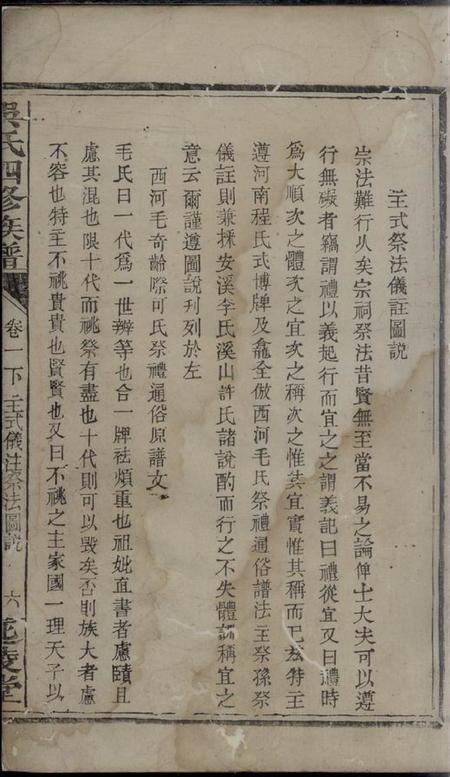 主式祭法儀註圖說
宗法難行久矣宗祠祭法昔賢無至當不易之論俾士大夫可以遵
行無礙者竊謂禮以義起行而宜之之謂義記曰禮從宜又曰禮時
為大順次之體次之宜次之稱次之惟其宜實惟其稱而已茲特主
遵河南程氏式博牌及龕全倣西河毛氏祭禮通俗譜法主祭孫祭
儀註則兼採安溪李氏溪山許氏諸說酌而行之不失體訓稱宜之
意云爾謹遵圖說刋列於左
西河毛奇齡際可氏祭禮通俗原譜文
毛氏曰一代為一世辦等也合一牌祛煩重也祖妣直書者慮賾且
慮其混也限十代而祧祭有盡也十代則可以毀矣否則族大者慮
不容也特主不祧貴貴也賢賢也又曰不祧之主家國一理天子以
吳氏四修族譜
卷一下 主式儀注祭法圖說
六
堂